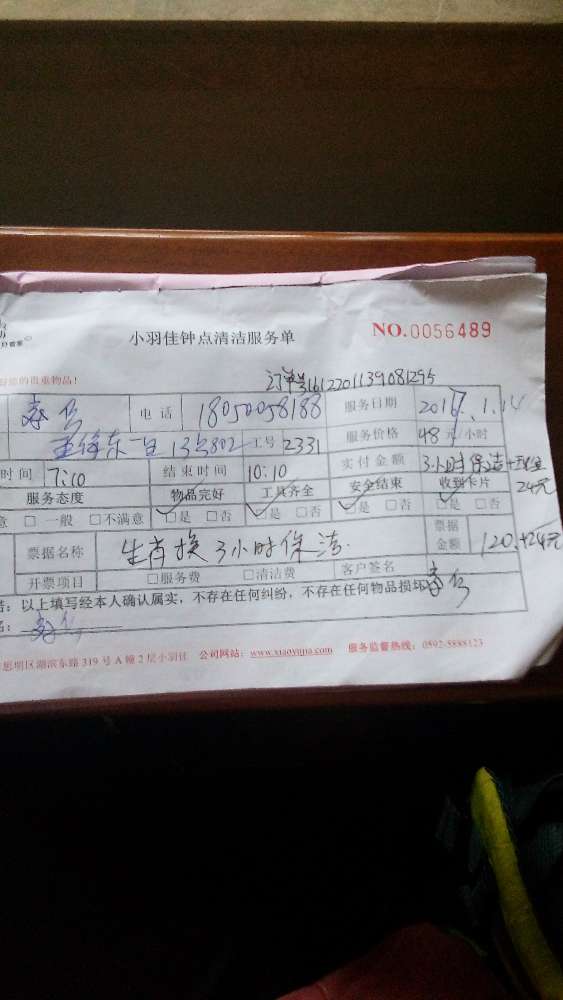 小羽佳钟点清洁服务单 NO.0056489
贵重物品！
订单号1612201139081295
电话 18050058188 服务日期 2017.1.14
东 13 802 工号 2331 服务价格 48元/小时
时间 7:10 结束时间 10:10 实付金额 3小时保洁+现金24元
服务态度 物品完好 工具齐全 安全结束 收到卡片
意 □ 一般 □不满意 □是 □否 □是 □否 □是 □否 □是 □否
票据名称 生肖换3小时保洁. 票据金额 120.+24元
开票项目 □服务费 □清洁费 客户签名
：以上填写经本人确认属实，不存在任何纠纷，不存在任何物品损坏
思明区湖滨东路319号A幢2层小羽佳 公司网站：www.xiaoyujia.com 服务监督热线：0592-5888123